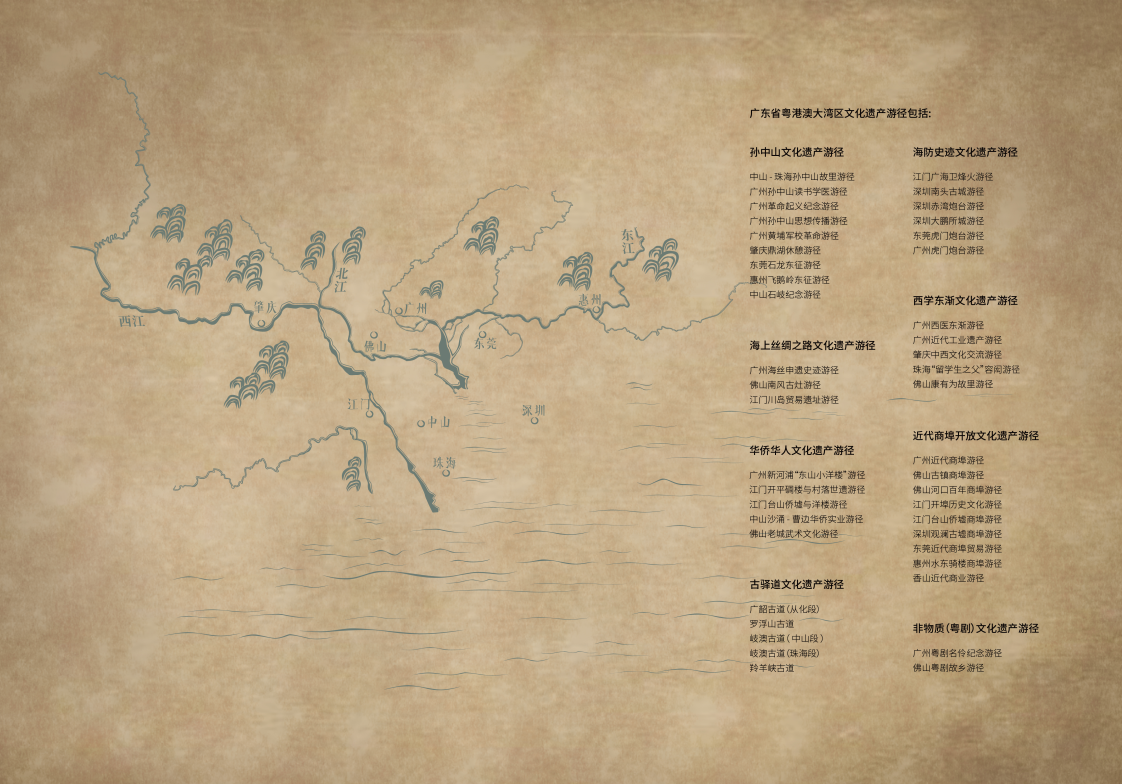 东江
北江
肇庆
广州
惠州
西江
佛山
东莞
江门
中山
深圳
珠海
广东省粤港澳大湾区文化遗产游径包括:
孙中山文化遗产游径
中山 - 珠海孙中山故里游径
广州孙中山读书学医游径
广州革命起义纪念游径
广州孙中山思想传播游径
广州黄埔军校革命游径
肇庆鼎湖休憩游径
东莞石龙东征游径
惠州飞鹅岭东征游径
中山石岐纪念游径
海上丝绸之路文化遗产游径
广州海丝申遗史迹游径
佛山南风古灶游径
江门川岛贸易遗址游径
华侨华人文化遗产游径
广州新河浦“东山小洋楼”游径
江门开平碉楼与村落世遗游径
江门台山侨墟与洋楼游径
中山沙涌 - 曹边华侨实业游径
佛山老城武术文化游径
古驿道文化遗产游径
广韶古道(从化段)
罗浮山古道
岐澳古道( 中山段 )
岐澳古道(珠海段)
羚羊峡古道
海防史迹文化遗产游径
江门广海卫烽火游径
深圳南头古城游径
深圳赤湾炮台游径
深圳大鹏所城游径
东莞虎门炮台游径
广州虎门炮台游径
西学东渐文化遗产游径
广州西医东渐游径
广州近代工业遗产游径
肇庆中西文化交流游径
珠海“留学生之父”容闳游径
佛山康有为故里游径
近代商埠开放文化遗产游径
广州近代商埠游径
佛山古镇商埠游径
佛山河口百年商埠游径
江门开埠历史文化游径
江门台山侨墟商埠游径
深圳观澜古墟商埠游径
东莞近代商埠贸易游径
惠州水东骑楼商埠游径
香山近代商业游径
非物质(粤剧)文化遗产游径
广州粤剧名伶纪念游径
佛山粤剧故乡游径